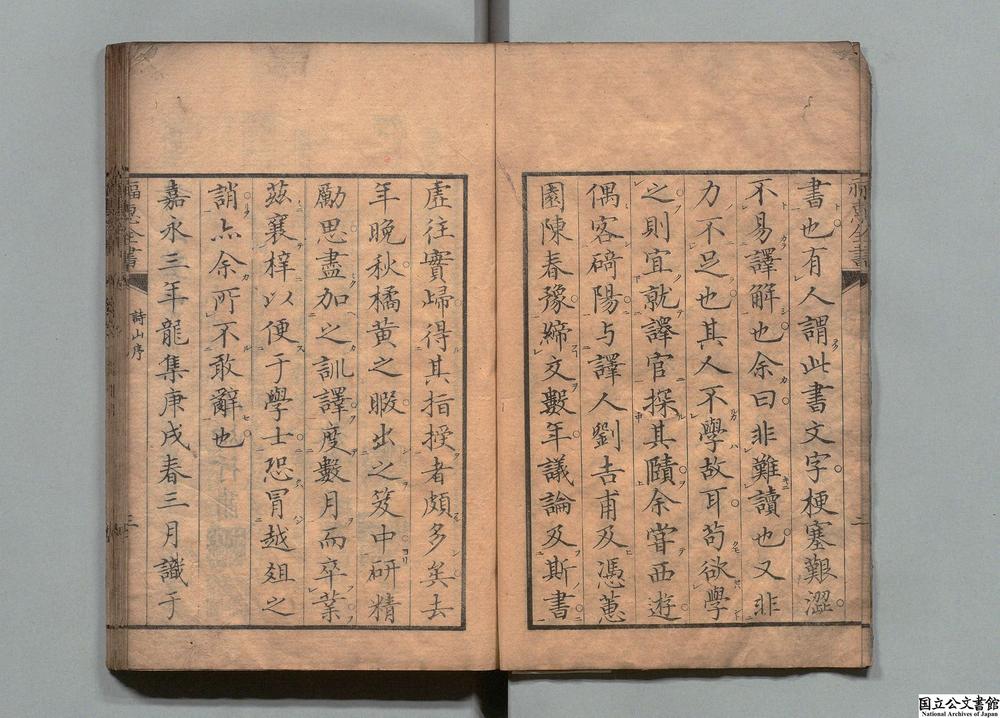 書也有人謂此書文字梗塞艱澀
不易譯解也余曰非難讀也又非
力不足也其人不學故耳苟欲學
之則宜就譯官探其賾余嘗西遊
偶客碕陽与譯人劉吉甫及馮蕙
園陳春豫締文數年議論及斯書
虛往實歸得其指授者頗多矣去
年晩秋橘黃之暇出之笈中研精
勵思盡加之訓譯度數月而卒業
茲襄梓以便于學士恐冒越俎之
誚亦余所不敢辭也
嘉永三年龍集庚戌春三月識于
福惠全書
詩山序
三
福惠全書
二
国立公文書館
National Archives of Japan